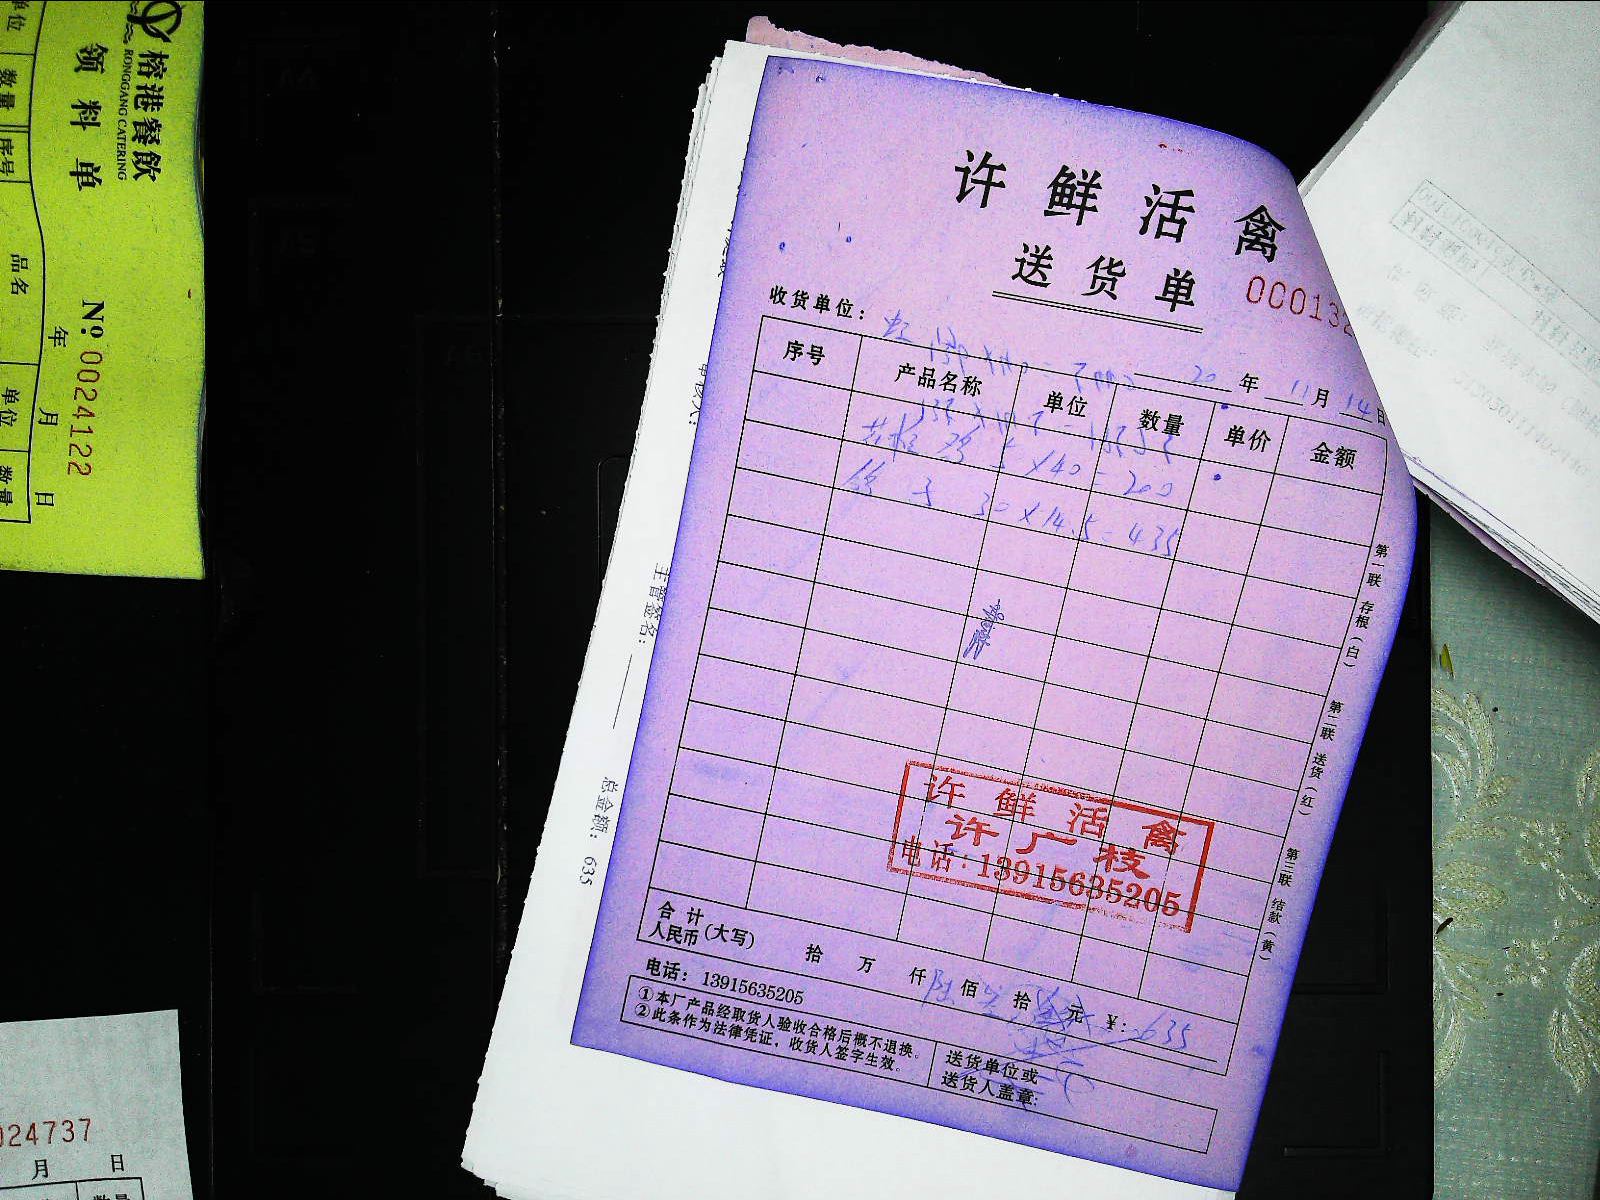 榕港餐飲
RONGGANG CATERING
领料单
№ 0024122
年 月 日
单位 数量 序号 品名 单位 数量
024737
月 日
许鲜活禽
送货单
000132
收货单位：
20 年 11 月 14 日
序号 产品名称 单位 数量 单价 金额
5×40=200
鸽子 30×14.5=435
许鲜活禽
许广枝
电话：13915635205
第一联 存根（白）
第二联 送货（红）
第三联 结款（黄）
合计
人民币(大写) 拾 万 仟 陆 佰 拾 元 ¥：635
电话：13915635205
①本厂产品经取货人验收合格后概不退换。
②此条作为法律凭证，收货人签字生效。
送货单位或
送货人盖章：
主管签名：
总金额：635